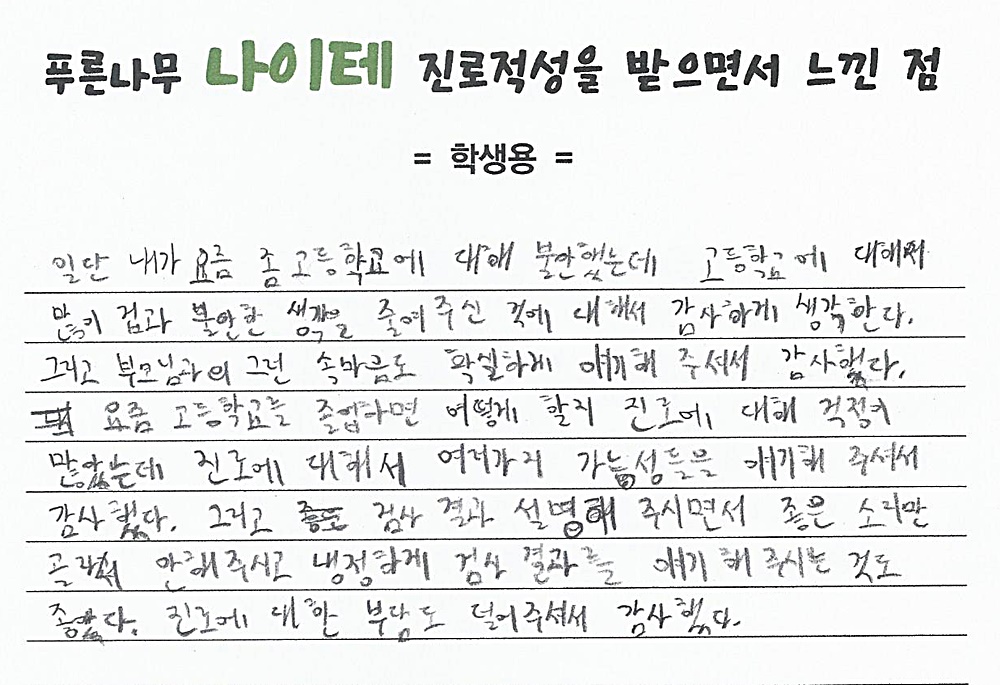 푸른나무 나이테 진로적성을 받으면서 느낀 점
= 학생용 =
일단 내가 요즘 좀 고등학교에 대해 불안했는데 고등학교에 대해서
만이 겁과 불안한 생각을 줄여주신 것에 대해서 감사하게 생각한다.
그리고 부모님과의 그런 속마음도 확실하게 얘기해 주셔서 감사했다.
요즘 고등학교를 졸업하면 어떻게 할지 진로에 대해 걱정이
많았는데 진로에 대해서 여러가지 가능성들을 얘기해 주셔서
감사했다. 그리고 검사 결과 설명해 주시면서 좋은 소리만
골라서 안해주시고 냉정하게 검사 결과를 얘기 해 주시는 것도
좋았다. 진로에 대한 부담도 덜어주셔서 감사했다.